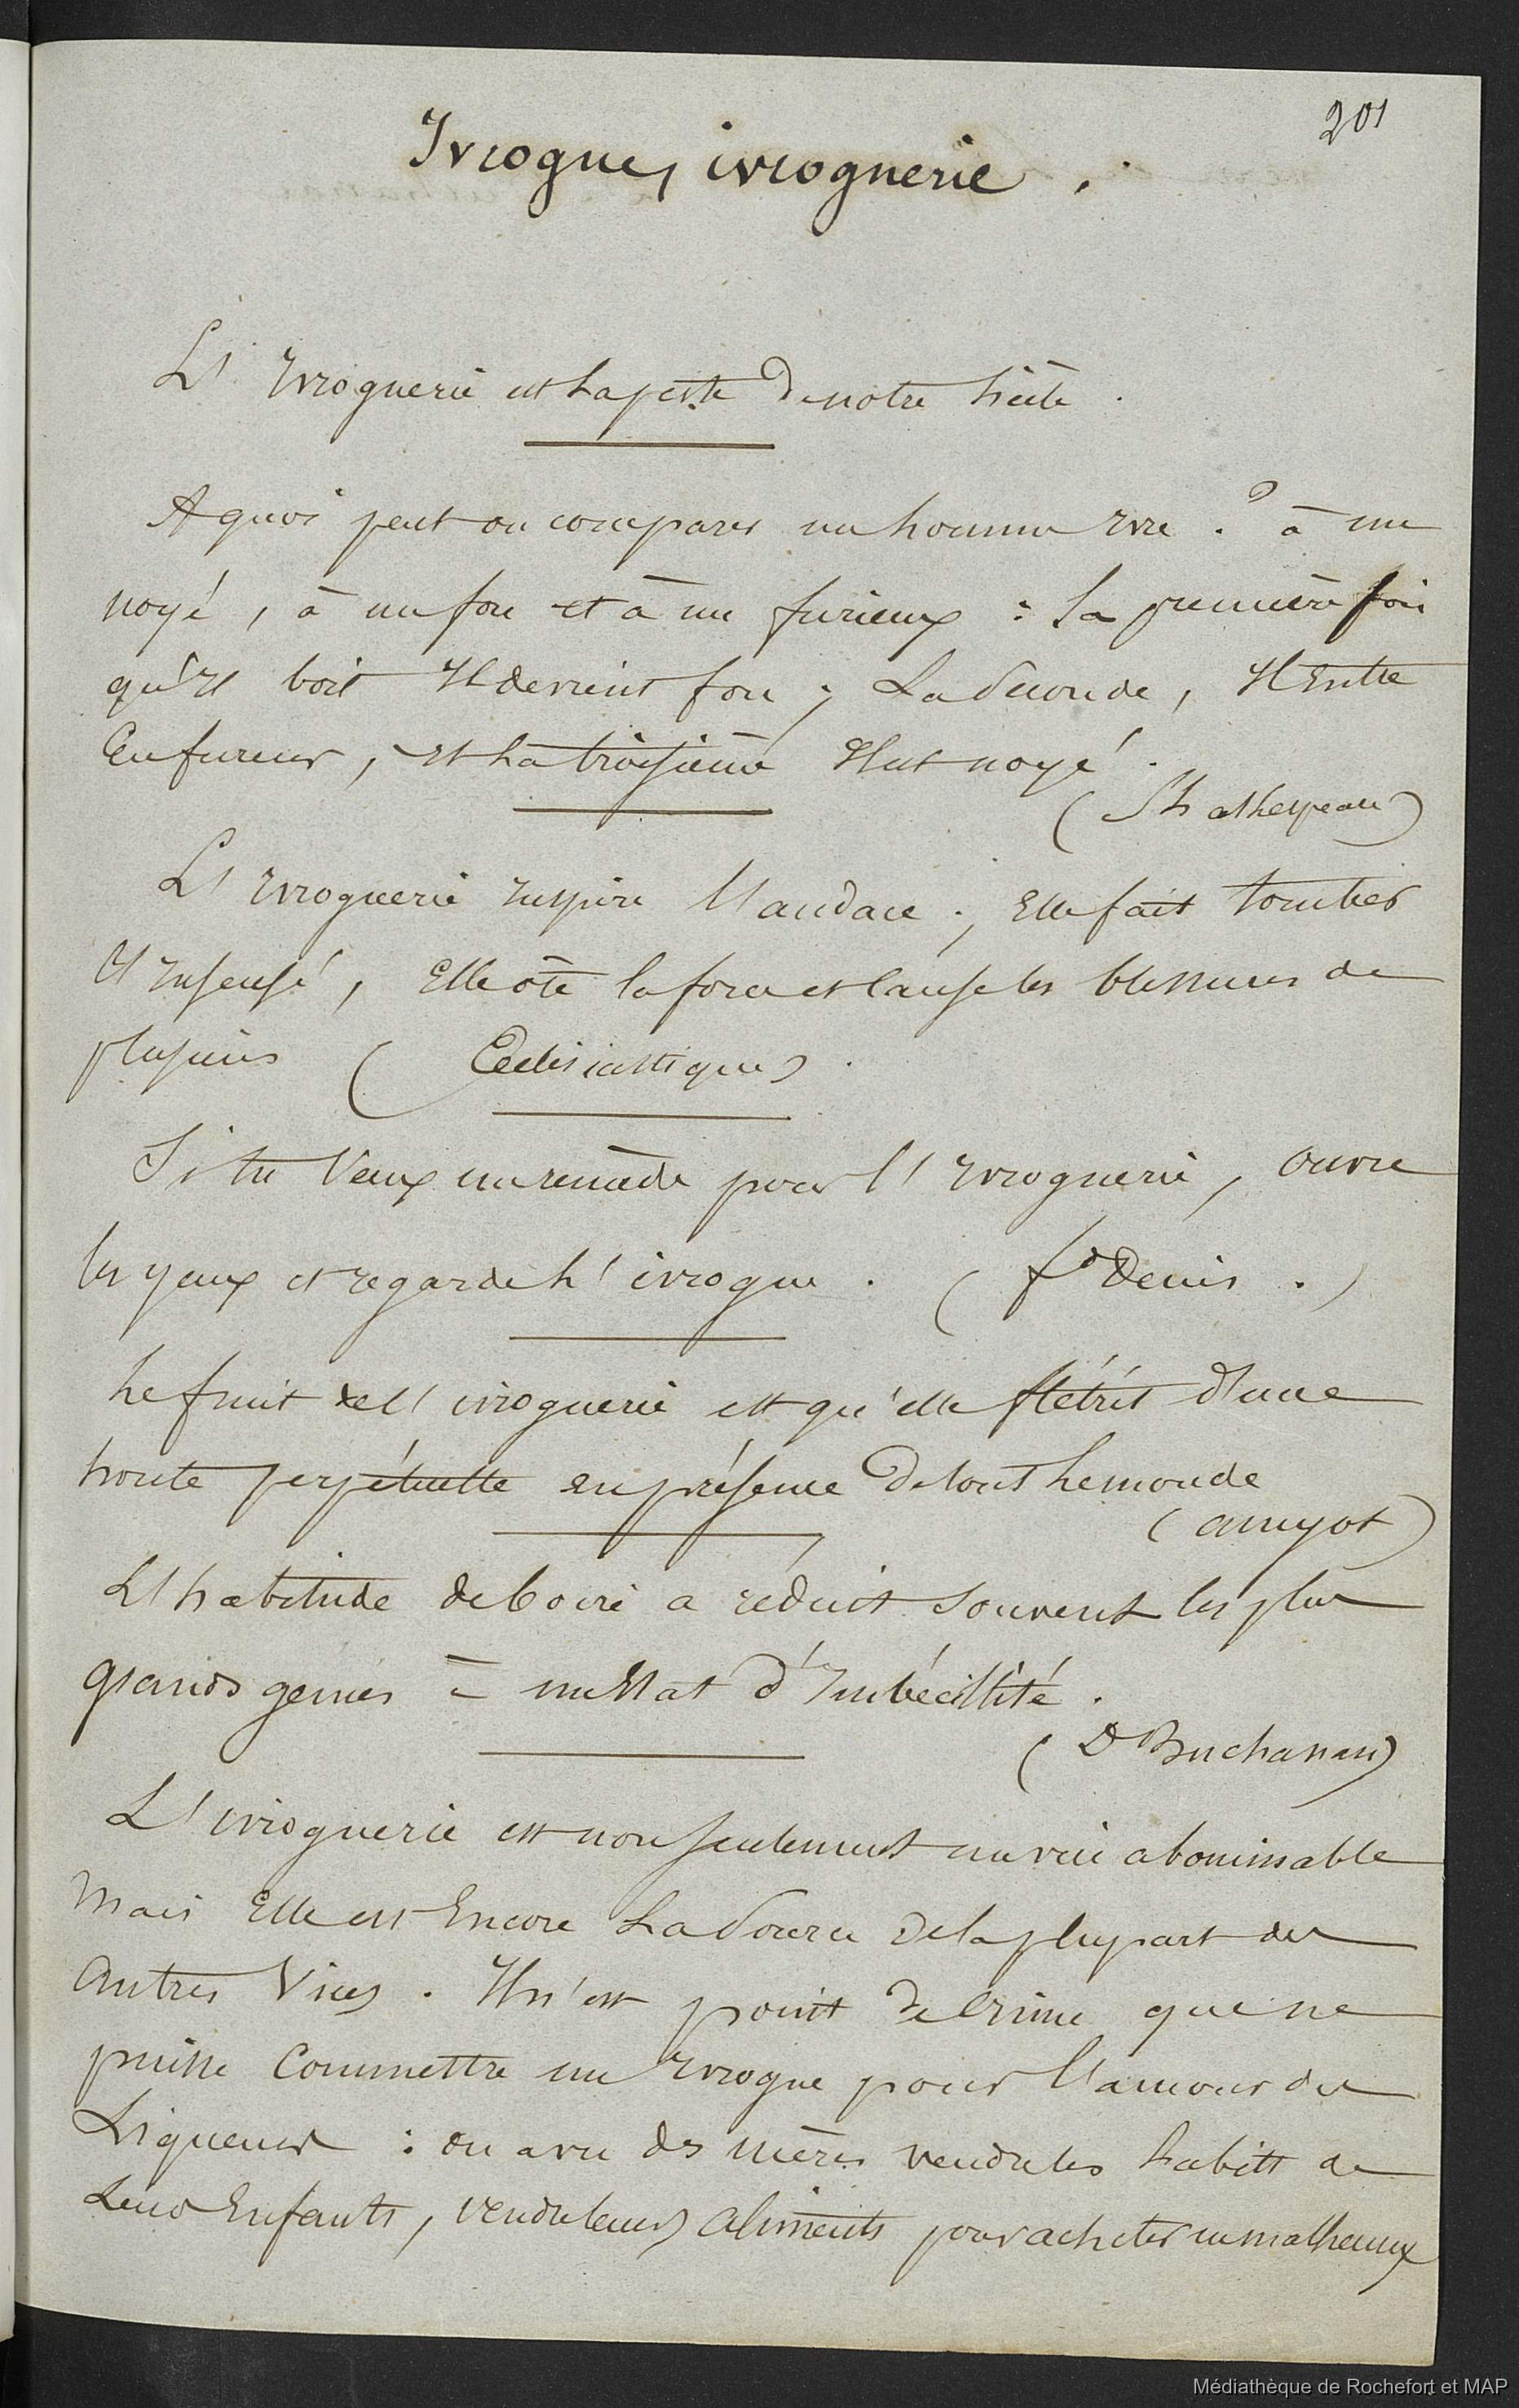 201
Ivrogne, ivrognerie.
L'Ivrognerie est la peste de notre siècle.
A quoi peut on comparer un homme Ivre ? à un
noyé, à un fou et à un furieux : la première fois
qu'Il boit Il devient fou ; La Seconde, Il Entre
En fureur, et la troisième Il est noyé.
(Shakespeare)
L'Ivrognerie Inspire l'audace ; Elle fait tomber
l'Insensé, Elle ôte la force et Cause les blessures de
plusieurs (Ecclésiastique).
Si tu Veux un remède pour l'Ivrognerie, Ouvre
les yeux et regarde l'ivrogne. (fd Denis.)
Le fruit de l'ivrognerie est qu'elle flétrit d'une
honte perpétuelle en présence de tout le monde
(amyot)
L'habitude de boire a réduit Souvent les plus
grands génies à un Etat d'Imbécillité.
(Dr Buchanan)
L'ivrognerie est non seulement un vice abominable
Mais Elle est Encore La Source de la plupart des
Autres Vices. Il n'est point de Crime que ne
puisse Commettre un Ivrogne pour l'amour des
Liqueurs : on a vu des mères vendre les habits de
Leurs Enfants, vendre leurs Aliments pour acheter ces malheureux
Médiathèque de Rochefort et MAP